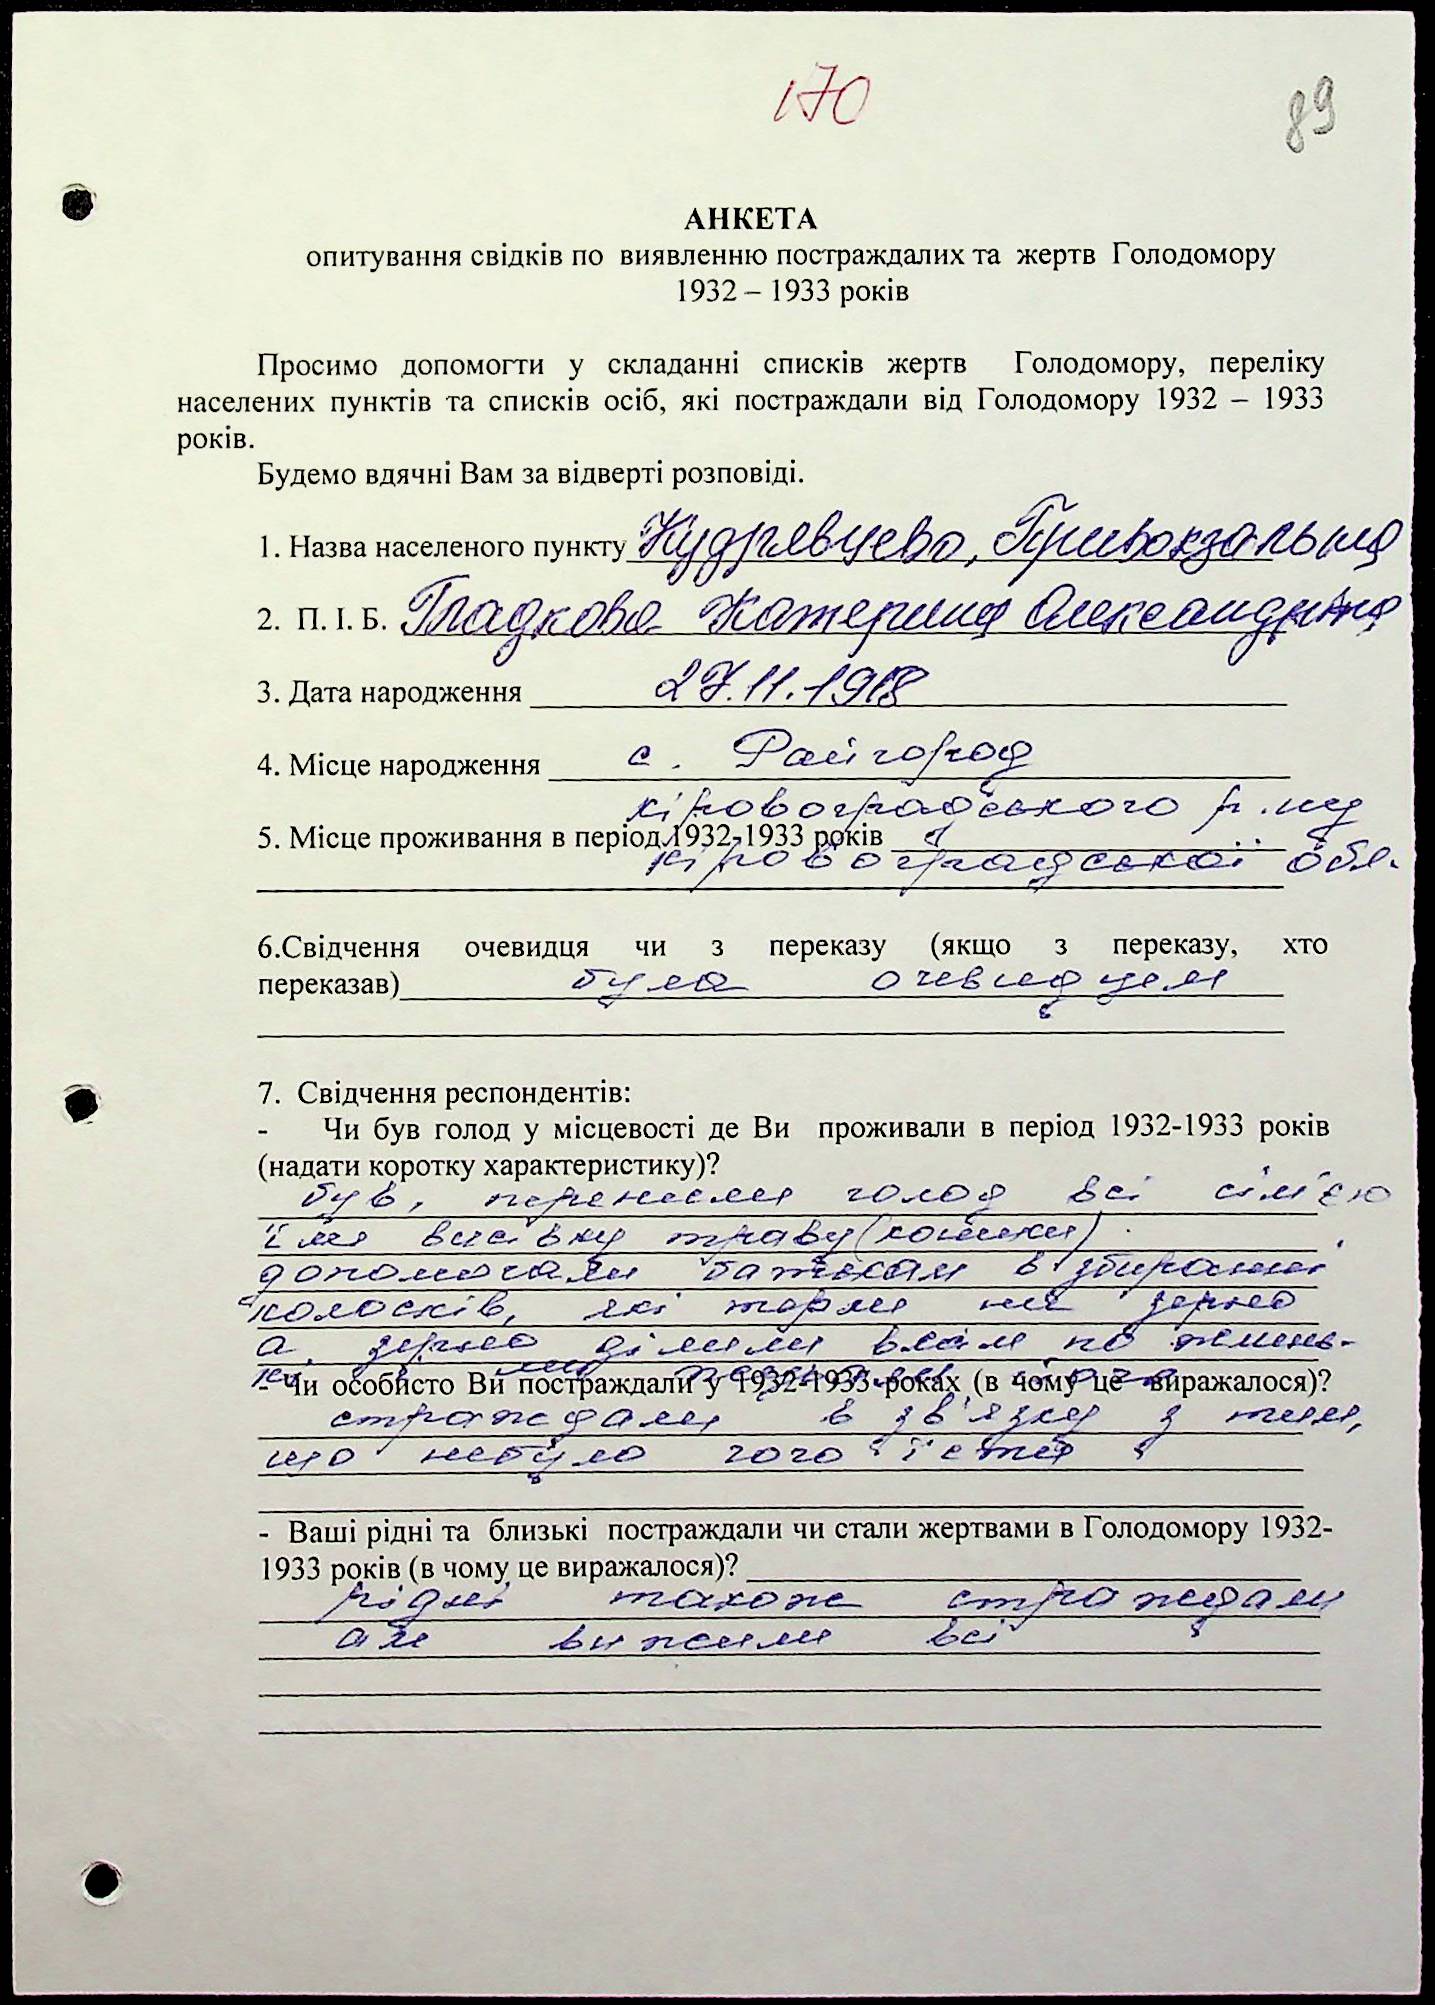 170
89
АНКЕТА
опитування свідків по виявленню постраждалих та жертв Голодомору
1932 – 1933 років
Просимо допомогти у складанні списків жертв Голодомору, переліку
населених пунктів та списків осіб, які постраждали від Голодомору 1932 – 1933
років.
Будемо вдячні Вам за відверті розповіді.
1. Назва населеного пункту Кудрявцево, Привокзальна
2. П. І. Б. Гладкова Катерина Олександрівна
3. Дата народження 27.11.1918
4. Місце народження с. Райгород
кіровоградського р.ну
5. Місце проживання в період 1932-1933 років
кіровоградської обл.
6.Свідчення очевидця чи з переказу (якщо з переказу, хто
переказав) була очевидцем
7. Свідчення респондентів:
- Чи був голод у місцевості де Ви проживали в період 1932-1933 років
(надати коротку характеристику)?
був, перенесли голод всі сім'єю
їли висівку траву
допомогали батькам в збиранні
колосків, які терли на зерно
а зерно ділили всім по жмень-
ки
- Чи особисто Ви постраждали у 1932-1933 роках (в чому це виражалося)?
страждали в зв'язку з тим,
що небуло чого їсти
- Ваші рідні та близькі постраждали чи стали жертвами в Голодомору 1932-
1933 років (в чому це виражалося)?
рідні також страждали
але вижили всі